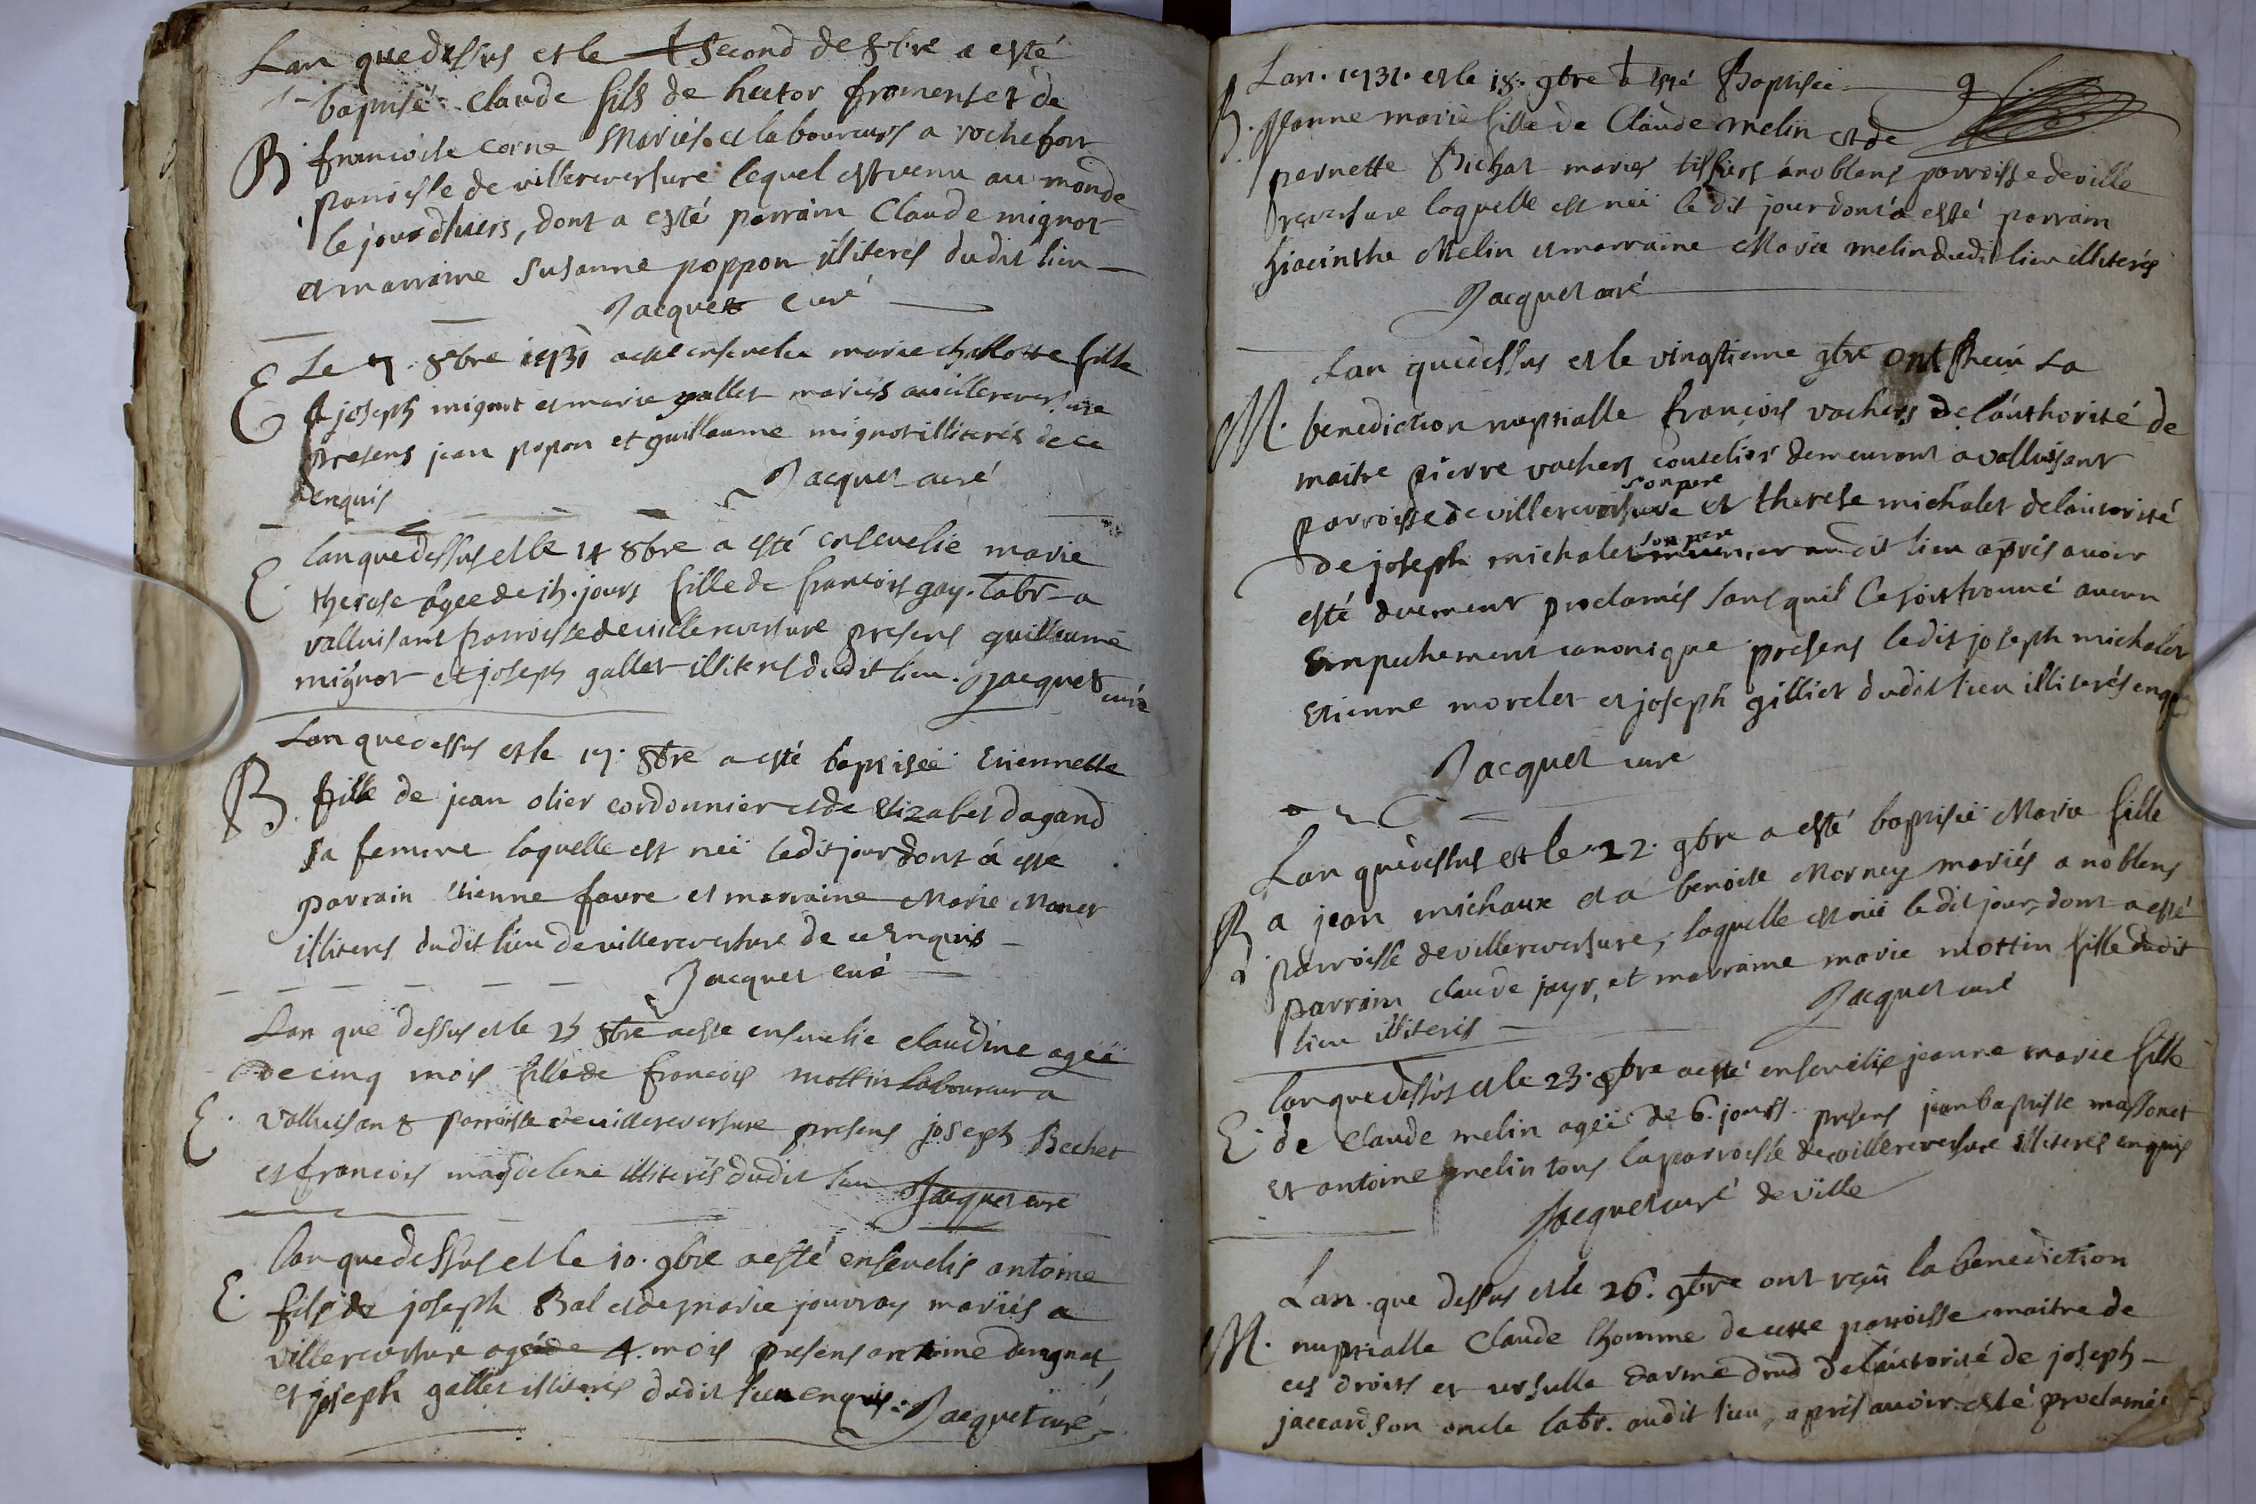 Lan que dessus et le second de 8bre a esté
baptisé Claude fils de hector froment et de
B francoise corne Mariés et laboureurs a rochefort
paroisse de villereversure lequel est venu au monde
le jour d'hiers, dont a esté parrain Claude mignot
et marraine Susanne poppon illiterés dudit lieu
Jacquet curé
E Le 7. 8bre 1731 a esté ensevelie marie charlotte fille
a joseph mignot et marie gallet mariés a villereversure
presens jean popon et guillaume mignot illiterés de ce
enquis Jacquet curé
Lan que dessus et le 14 8bre a esté ensevelie marie
E. therese agee de 15. jours fille de francois gay. labr. a
valluisant parroisse de villereversure presens guillaume
mignot et joseph gallet illiterés dudit lieu. Jacquet curé
Lan que dessus et le 17. 8bre a esté baptiseë Etiennette
B. fille de jean olier cordonnier et de Elizabet dagand
sa femme laquelle est neë ledit jour dont a esté
parrain Etienne favre et marraine Marie Monet
illiterés dudit lieu de villereversure de ce enquis
Jacquet curé
Lan que dessus et le 25 8bre a esté ensevelie claudine ageë
de cinq mois fille de francois mottin laboureur a
E. valluisant parroisse de villereversure presens joseph Bechet
et francois magdelene illiterés dudit lieu Jacquet curé
Lan que dessus et le 10. 9bre a esté ensevelis antoine
E. fils de joseph Bal et de marie jouvray mariés a
villereversure agé de 4. mois presens antoine
et joseph gallet illiterés dudit lieu enquis. Jacquet curé
Lan. 1731. et le 18. 9bre a esté Baptiseë 9
B. Jeanne marie fille de Claude melin et de
pernette Bichat mariés tissiers a noblens parroisse de ville
reversure laquelle est neë le dit jour dont a esté parrain
hiacinthe Melin et marraine Marie melin dudit lieu illiterés
Jacquet curé
Lan que dessus et le vingtieme 9bre ont receu La
M. benediction nuptialle francois vachers de lauthorité de
maitre pierre vachers coutelier demeurant a valluisant
son pere
parroisse de villereversure et therese michalet de lautorité
son pere
de joseph michalet audit lieu aprés avoir
esté duement proclamés sans quil se soit trouvé aucun
Empechement canonique presens ledit joseph michalet
Etienne morelet et joseph gillier dudit lieu illiterés enqs
Jacquet curé
Lan que dessus et le 22. 9bre a esté baptiseë Marie fille
B a jean michaux et a benoite Morney mariés a noblens
parroisse de villereversure, laquelle est neë le dit jour, dont a esté
parrain claude jayr, et marraine marie mottin fille dudit
lieu illiterés Jacquet curé
Lan que dessus et le 23. 9bre a esté ensevelie jeanne marie fille
E. de Claude melin ageë de 6. jours. presens jean baptiste massonet
Et antoine melin tous la parroisse de villereversure illiterés enquis
Jacquet curé de ville
Lan que dessus et le 26. 9bre ont reçu la benediction
M. nuptialle Claude lhomme de cette parroisse maitre de
ces droits et ursulle darmedrud de lautorité de joseph
jaccard son oncle labr. audit lieu, aprés avoir esté proclamés